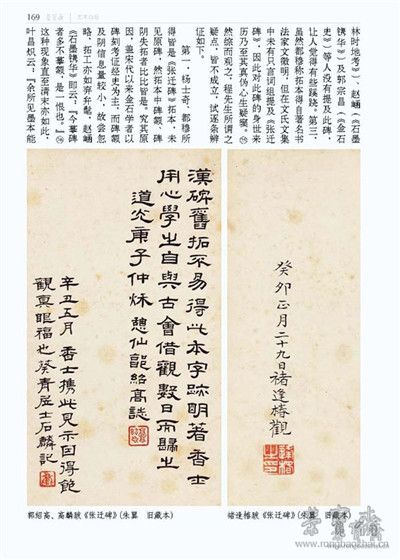 169
林时地考》)、赵崡(《石墨
镌华》)及郭宗昌(《金石
史》)等人没有提及此碑,
让人觉得有些蹊跷。第三,
虽然都穆所本得自著名书
法家文徵明,但在文氏文集
中未有只言词组提及《张迁
碑》,因此对此碑的身世来
历乃至其真伪心生疑窦。
然综而观之,程先生所谓之
疑点,皆不成立,试逐条辨
证如下。
第一,杨士奇、都穆所
得皆是《张迁碑》拓本,未
见原碑。然拓本中碑额、碑
阴失拓者比比皆是。究其原
因,盖宋代以来金石学者以
碑刻考证经史为主,而碑额
及阴信息量较小,故会忽
略,拓工亦如弃弁髦。赵崡
《石墨镌华》即云:“今摹碑
者多不摹额,是一恨也。”
这种现象直至清末亦如此,
叶昌炽云:“余所见墨本能
癸卯正月二十九日褚逢椿觀
漢碑舊拓不易得此本字跡明著香士
用心學之自與古會借觀數日而歸之
道光庚子仲秌憩仙郭紹高誌
辛丑五月香士携此見示因得飽
觀眞眼福也癸青居士石麟記
郭绍高、高麟跋《张迁碑》(朱翼 旧藏本)
褚逢椿跋《张迁碑》(朱翼 旧藏本)
荣宝斋
www.rongbaozhai.cn